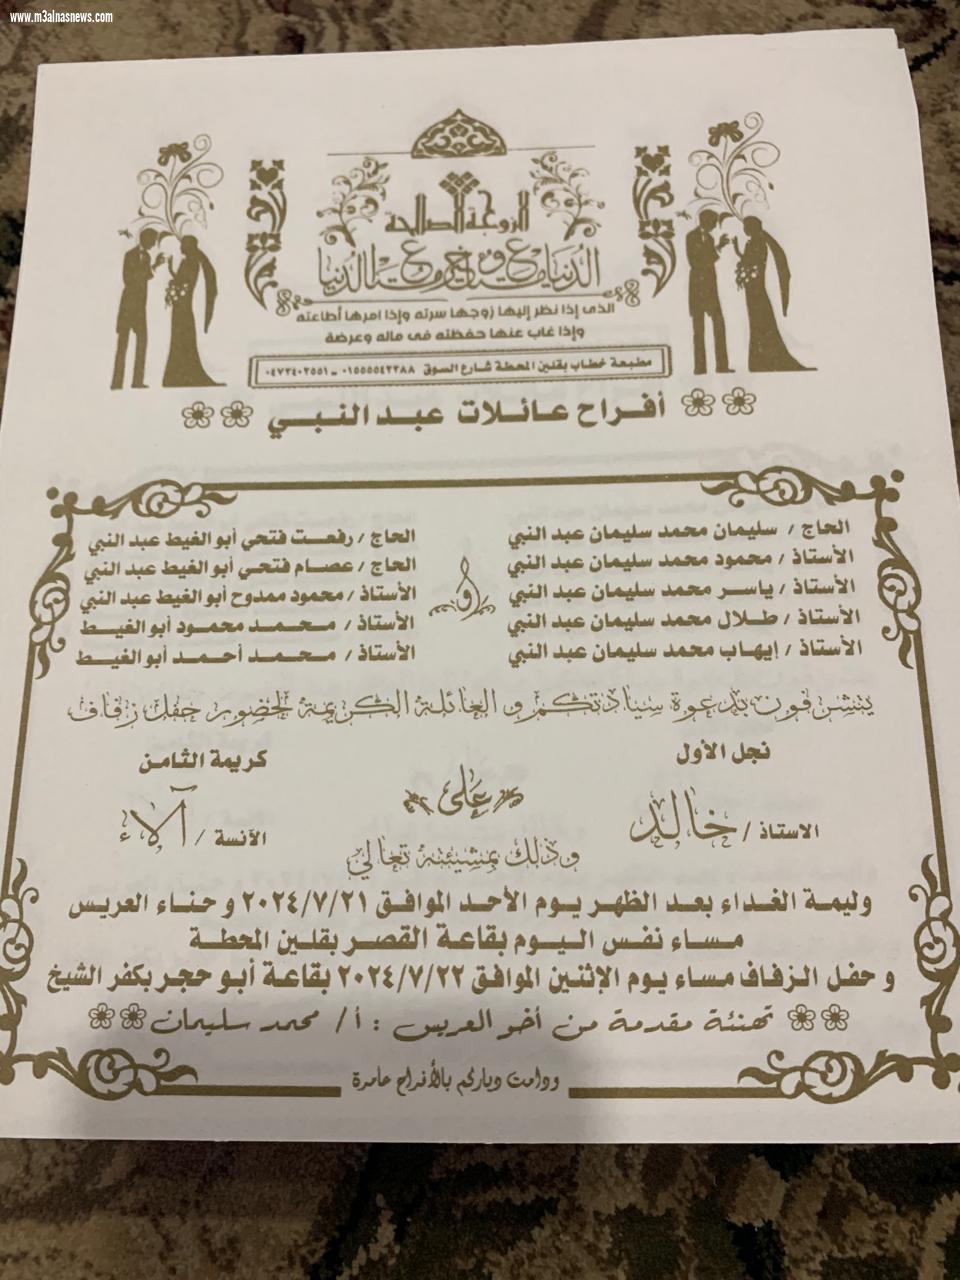 www.m3alnasnews.com
الزوجة الصالحة
الدنيا متاع وخير متاع الدنيا
الذى إذا نظر إليها زوجها سرته وإذا امرها أطاعته
وإذا غاب عنها حفظته فى ماله وعرضة
مطبعة خطاب بقلين المحطة شارع السوق ٠١٥٥٥٥٤٢٣٨٨ - ٠٤٧٣٤٠٢٥٥١
أفراح عائلات عبد النبي
الحاج / سليمان محمد سليمان عبد النبي
الأستاذ / محمود محمد سليمان عبد النبي
الأستاذ / ياسر محمد سليمان عبد النبي
الأستاذ / طلال محمد سليمان عبد النبي
الأستاذ / إيهاب محمد سليمان عبد النبي
و
الحاج / رفعت فتحي أبو الغيط عبد النبي
الحاج / عصام فتحي أبو الغيط عبد النبي
الأستاذ / محمود ممدوح أبو الغيط عبد النبي
الأستاذ / محمد محمود أبو الغيط
الأستاذ / محمد أحمد أبو الغيط
يتشرفون بدعوة سيادتكم و العائلة الكريمة لحضور حفل زفاف
نجل الأول
الاستاذ / خالد
على
كريمة الثامن
الآنسة / آلاء
وذلك بمشيئته تعالي
وليمة الغداء بعد الظهر يوم الأحد الموافق ٢٠٢٤/٧/٢١ و حناء العريس
مساء نفس اليوم بقاعة القصر بقلين المحطة
و حفل الزفاف مساء يوم الإثنين الموافق ٢٠٢٤/٧/٢٢ بقاعة أبو حجر بكفر الشيخ
تهنئة مقدمة من أخو العريس : أ/ محمد سليمان
ودامت دياركم بالأفراح عامرة